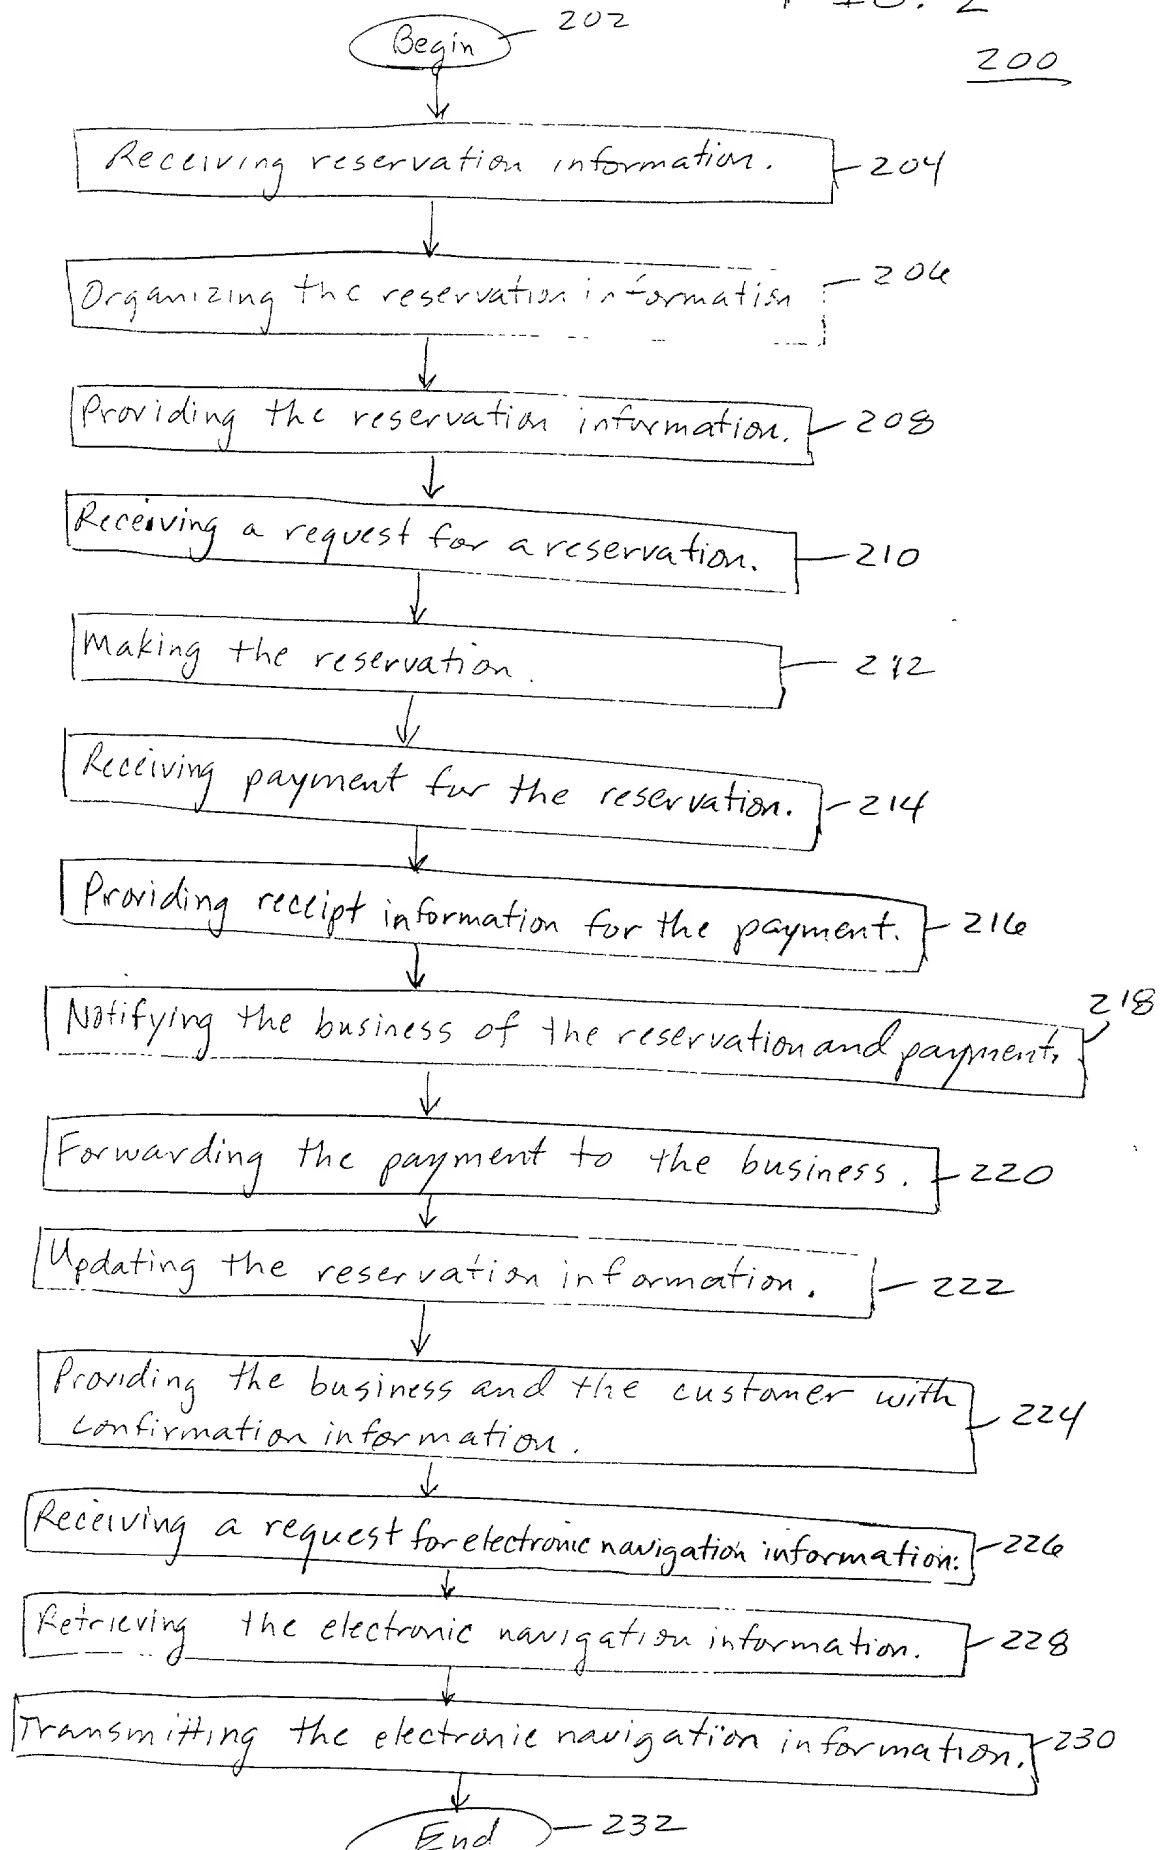 FIG. 2
202
Begin
200
Receiving reservation information.
204
Organizing the reservation information
206
Providing the reservation information.
208
Receiving a request for a reservation.
210
Making the reservation.
212
Receiving payment for the reservation.
214
Providing receipt information for the payment.
216
218
Notifying the business of the reservation and payment.
Forwarding the payment to the business.
220
Updating the reservation information.
222
Providing the business and the customer with
confirmation information.
224
Receiving a request for electronic navigation information.
226
Retrieving the electronic navigation information.
228
Transmitting the electronic navigation information.
230
End
232